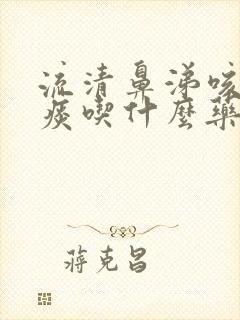 流清鼻涕咳
痰喫什麼藥
蔣克昌